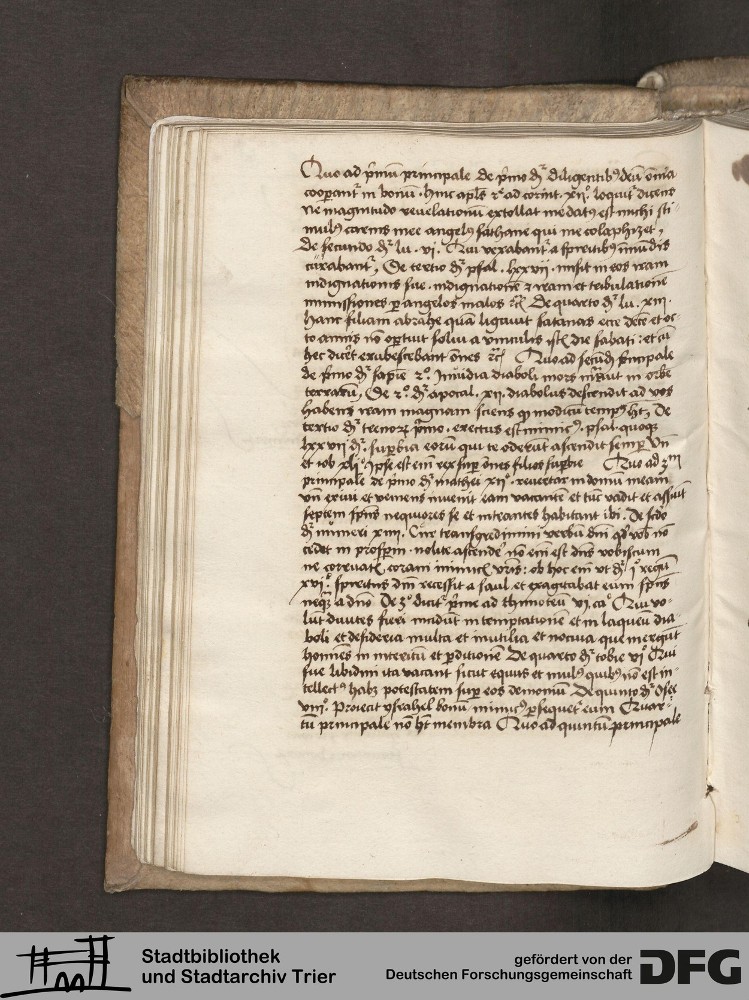 Quo ad p̄mū principale de p̄mo dr̄ diligentibꝰ deū om̄ia
cooperant᷑ in bonū · hinc apl̄s 2ᵃ ad corint · xiiº · loquit᷑ dicens
Ne magnitudo reuelationū extollat me datꝰ est michi sti-
mulꝰ carnis mee angelꝰ sathane qui me colaphizet ,
de secundo dr̄ lu · vi · Qui vexabant᷑ a spiritibꝰ īmūdis
curabant᷑ , De tertio dr̄ psal · lxxvii · misit in eos iram
indignationis sue · indignationē ⁊ iram et tribulationē
inmissiones ꝑ angelos malos ⁊c̄ De quarto dr̄ lu · xiii ·
hanc filiam abrahe quā ligauit satanas ecce decē et oc-
to annis nō oportuit solui a vinculis die sabati : et cū
hec dicēt erubescebant ōnes ⁊c̄ Quo ad secūdū principale
de p̄mo dr̄ sapīe 2º · Inuidia diaboli mors int̄uit in orbē
terrarū , De 2º dr̄ apocal · xii · diabolus descendit ad vos
habens iram magnam sciens ꝙ modicū tempꝰ hꝫ , De
tertio dr̄ p̄mo · erectus est inimicꝰ · psal · quoqꝫ
lxxvii dr̄ · supbia eorū qui te oderūt ascendit semꝑ Vn̄
et iob xliº · Ipse est em̄ rex suꝑ ōnes filios supbie Quo ad 3ᵐ
principale de p̄mo dr̄ mathei xiiº · reuertar in domū meam
vn̄ exiui et veniens inuenit eam vacantē et tūc vadit et assuit
septem spūs nequiores se et intrantes habitant ibi · De scdo
dr̄ numeri xiiii · Cur transgredimini verbū dn̄i qd̄ vob̄ nō
cedet in prosperū · nolite ascendē nō em̄ est dn̄s vobiscum
ne corruatis coram inimicis vr̄is : ob hoc em̄ vt dr̄ iº regū
xviº · spiritus dn̄i recessit a saul et exagitabat eum spūs
neqꝫ a dn̄o De 3º dicit᷑ p̄me ad thimoteū vi · caº Qui vo-
lūt diuites fieri incidūt in temptationē et in laqueū dia-
boli et desideria multa et inutilia et nociua que mergūt
homīes in interitū et ꝑditionē De quarto dr̄ tobie viº Qui
sue libidini ita vacant sicut equus et mulꝰ quibꝰ nō est in-
tellectꝰ habꝫ potestatem suꝑ eos demoniū De quinto dr̄ osee
viiiº · Proiecit ysrahel bonū inimicꝰ ꝑsequet᷑ eum Quar-
tū principale nō hꝫ membra Quo ad quintū principale
Stadtbibliothek
und Stadtarchiv Trier
gefördert von der
Deutschen Forschungsgemeinschaft
DFG